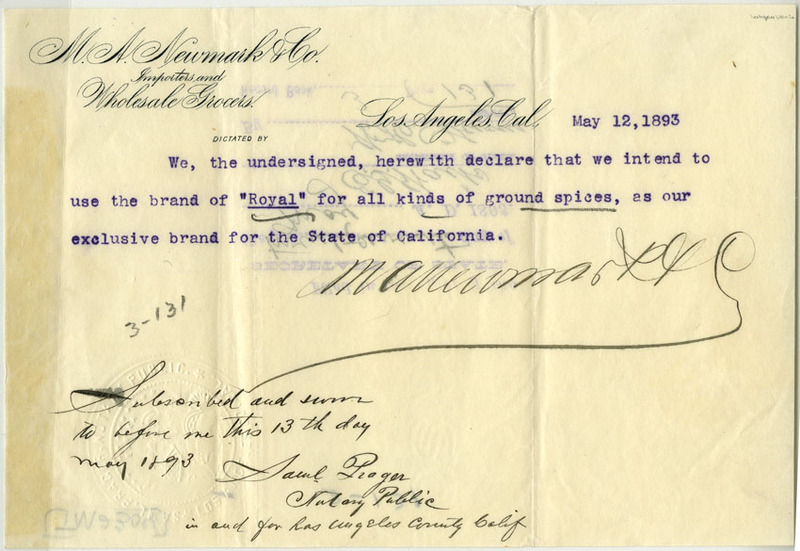 M. A. Newmark & Co.
Importers and
Wholesale Grocers.
Los Angeles, Cal., May 12, 1893
DICTATED BY
We, the undersigned, herewith declare that we intend to
use the brand of "Royal" for all kinds of ground spices, as our
exclusive brand for the State of California.
M A Newmark & Co
3-131
Subscribed and sworn
to before me this 13th day
may 1893
Saml Prager
Notary Public
in and for Los Angeles County Calif